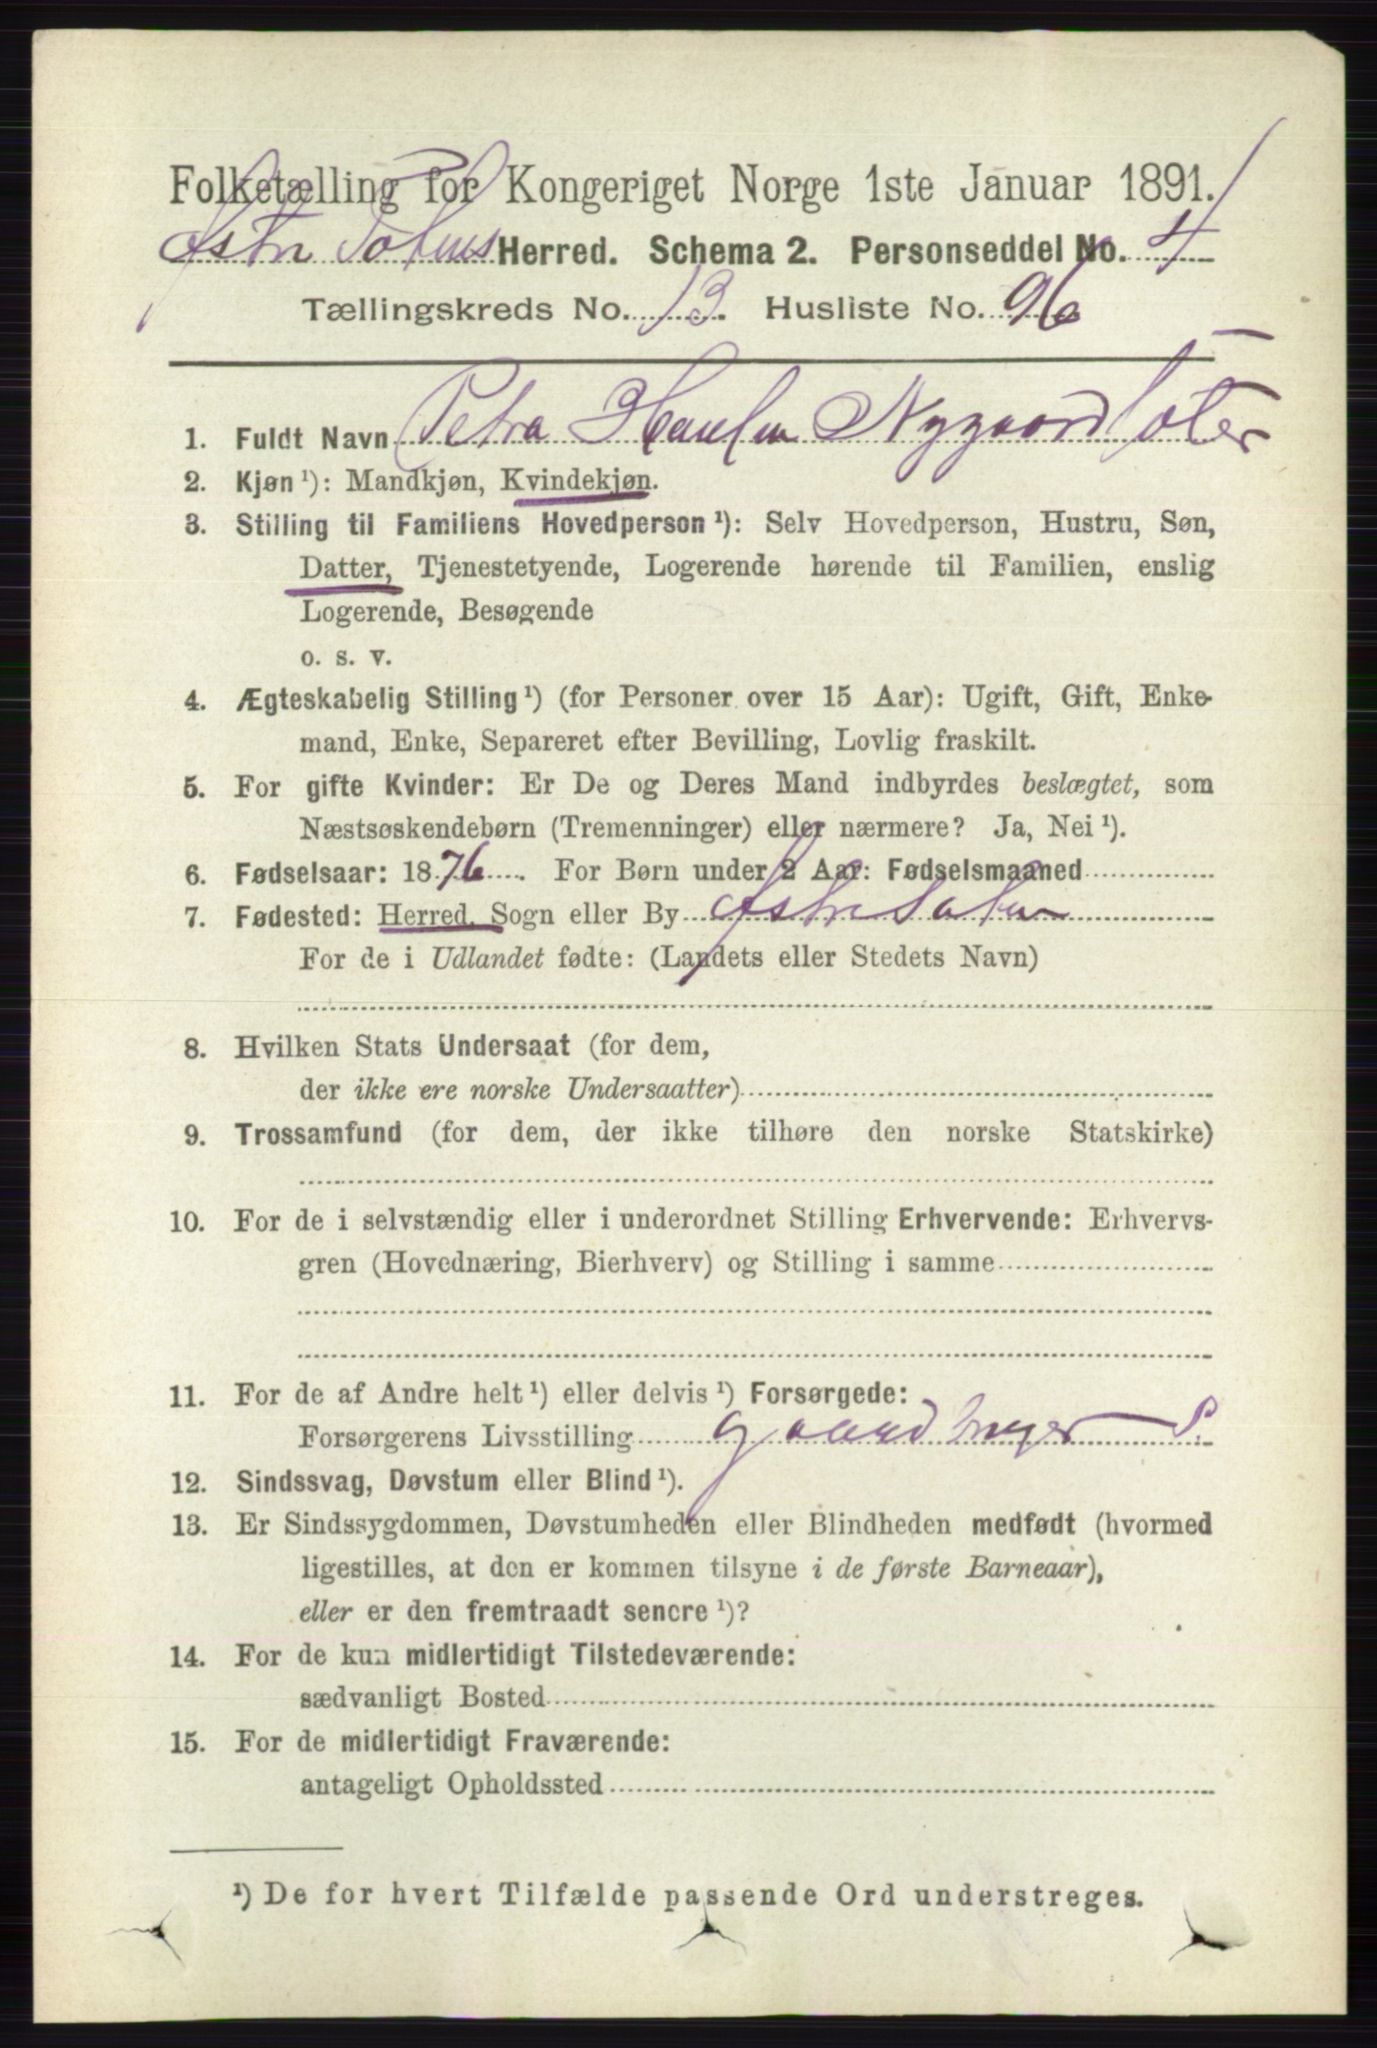 Folketælling for Kongeriget Norge 1ste Januar 1891.
Østre Totens Herred. Schema 2. Personseddel No. 4
Tællingskreds No. 13. Husliste No. 96
1. Fuldt Navn Petra Nygaard
2. Kjøn ¹): Mandkjøn, Kvindekjøn.
3. Stilling til Familiens Hovedperson ¹): Selv Hovedperson, Hustru, Søn,
Datter, Tjenestetyende, Logerende hørende til Familien, enslig
Logerende, Besøgende
o. s. v.
4. Ægteskabelig Stilling ¹) (for Personer over 15 Aar): Ugift, Gift, Enke-
mand, Enke, Separeret efter Bevilling, Lovlig fraskilt.
5. For gifte Kvinder: Er De og Deres Mand indbyrdes beslægtet, som
Næstsøskendebørn (Tremenninger) eller nærmere? Ja, Nei ¹).
6. Fødselsaar: 1876. For Børn under 2 Aar: Fødselsmaaned
7. Fødested: Herred, Sogn eller By Østre Toten
For de i Udlandet fødte: (Landets eller Stedets Navn)
8. Hvilken Stats Undersaat (for dem,
der ikke ere norske Undersaatter)
9. Trossamfund (for dem, der ikke tilhøre den norske Statskirke)
10. For de i selvstændig eller i underordnet Stilling Erhvervende: Erhvervs-
gren (Hovednæring, Bierhverv) og Stilling i samme
11. For de af Andre helt ¹) eller delvis ¹) Forsørgede:
Forsørgerens Livsstilling Gaardbruger S.
12. Sindssvag, Døvstum eller Blind ¹).
13. Er Sindssygdommen, Døvstumheden eller Blindheden medfødt (hvormed
ligestilles, at den er kommen tilsyne i de første Barneaar),
eller er den fremtraadt senere ¹)?
14. For de kun midlertidigt Tilstedeværende:
sædvanligt Bosted
15. For de midlertidigt Fraværende:
antageligt Opholdssted
¹) De for hvert Tilfælde passende Ord understreges.